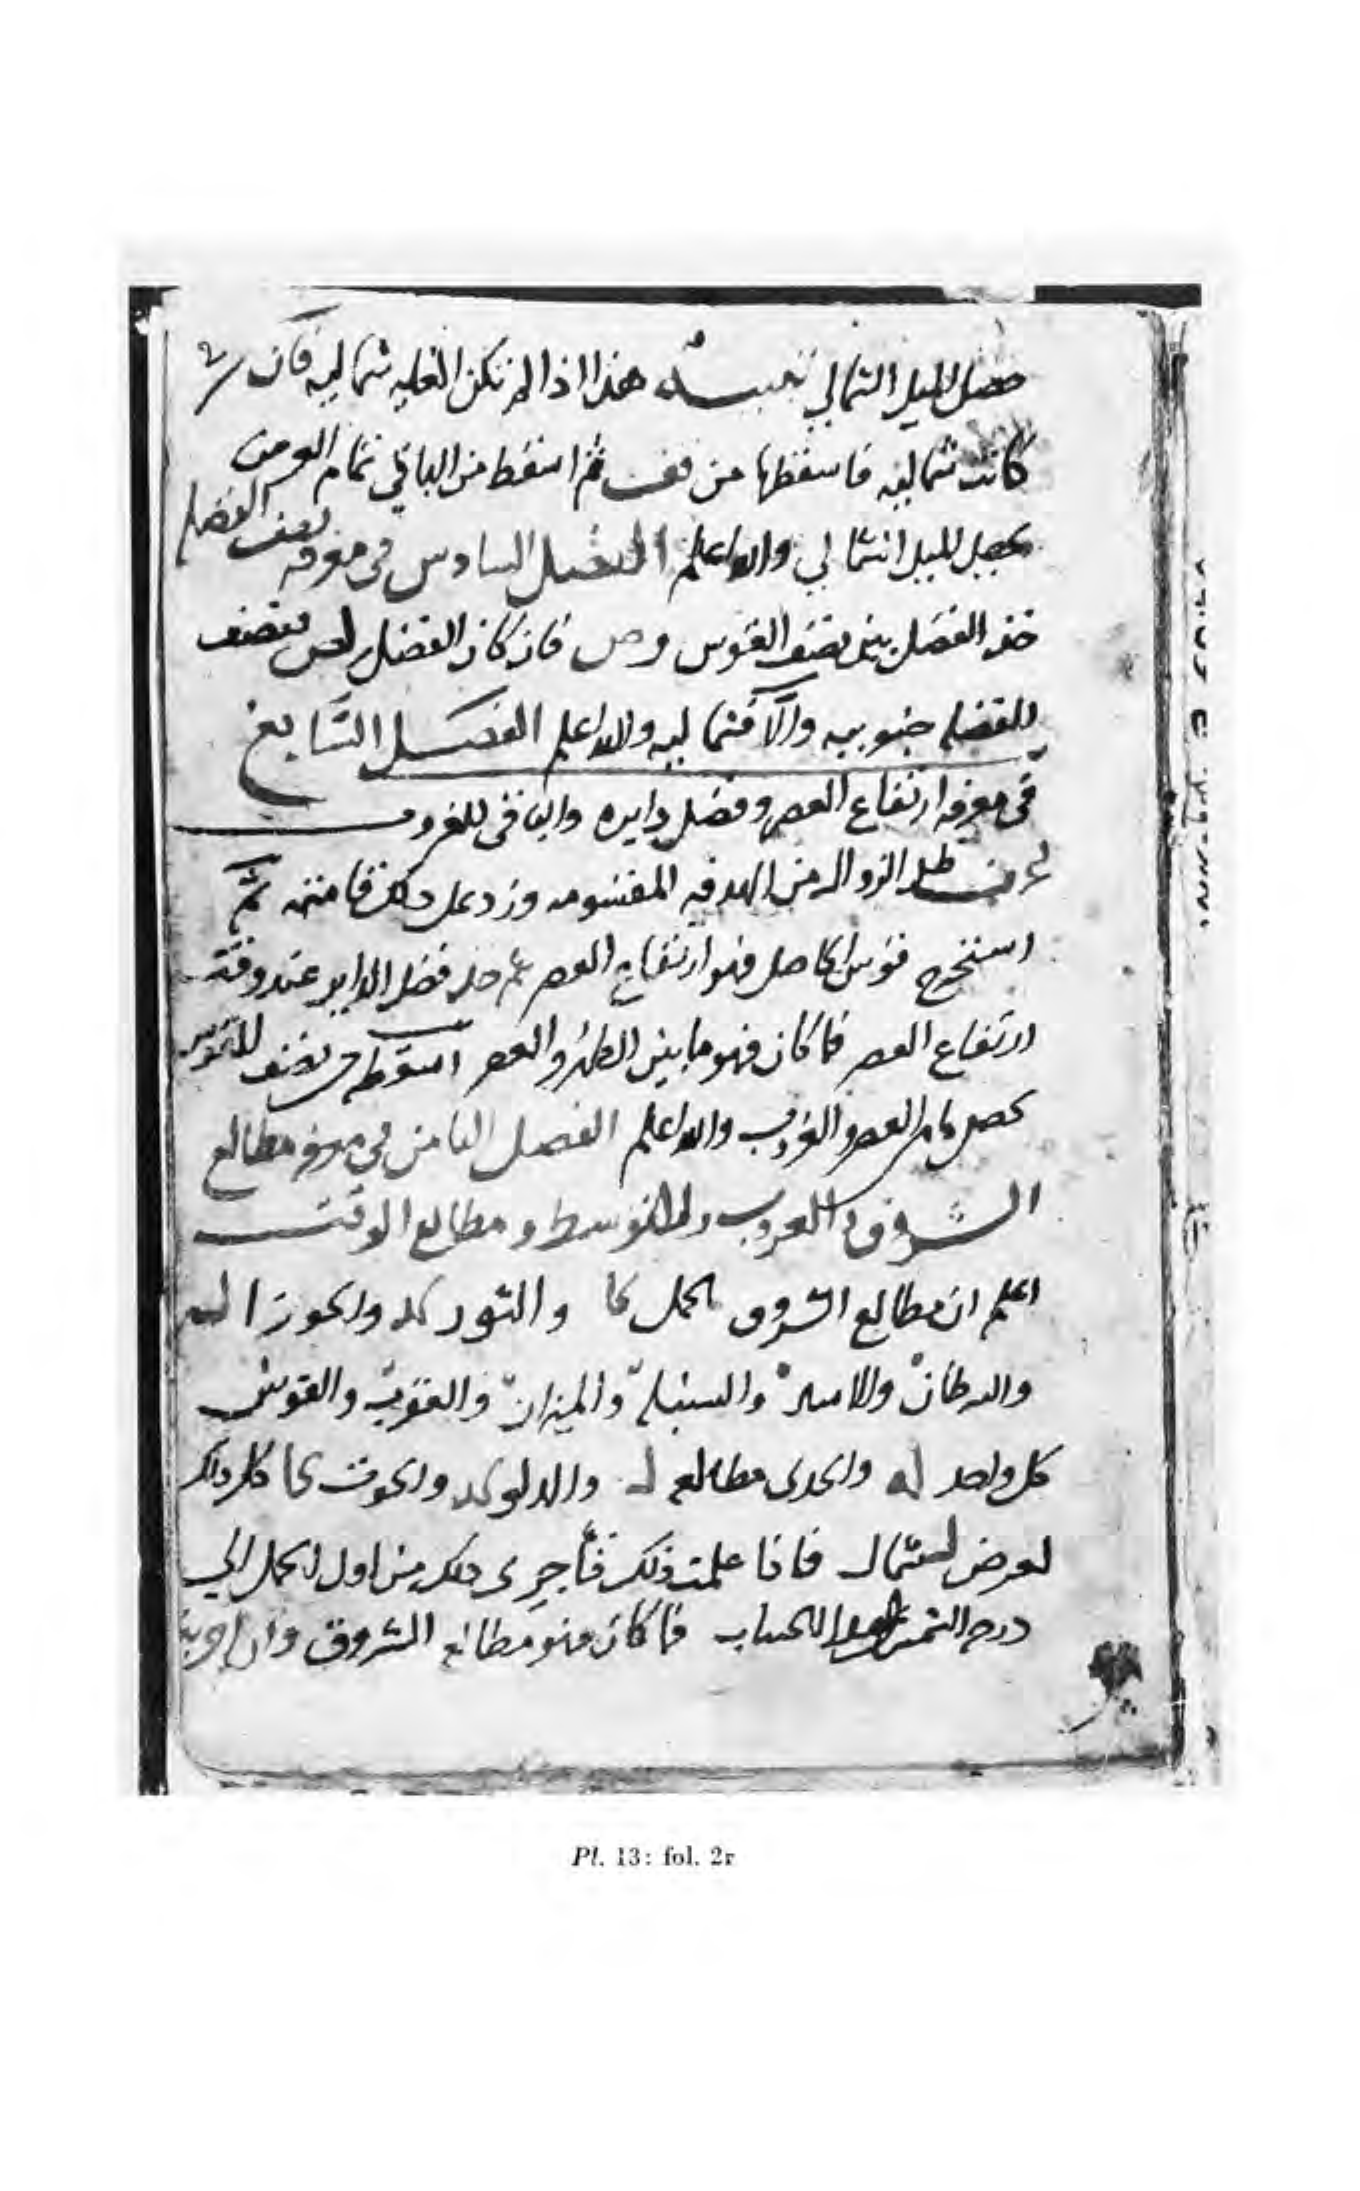 حصل الميل الشمالي تنبيه هذا اذا لم تكن الغايه شماليه فان
كانت شماليه فاسقطها من قف ثم اسقط من الباقي تمام العرض
يحصل الميل الشمالي والله اعلم الفصل السادس في معرفه نصف الفضله
خذ الفضل بين نصف القوس وص فان كان الفضل لص فنصف
الفضله جنوبيه والا فشماليه والله اعلم الفصل السابع
في معرفه ارتفاع العصر وفضل دايره والباقي للغروب
ظل الزوال من المقسومه وزد على ذلك قامته ثم
استخرج قوس الحاصل فهو ارتفاع العصر ثم خذ فضل الداير عند وقته
ارتفاع العصر فما كان فهو ما بين الظهر والعصر اسقطه من نصف القوس
يحصل ما بين العصر والغروب والله اعلم الفصل الثامن في معرفه مطالع
الشروق والغروب والتوسط ومطالع الوقت
اعلم ان مطالع الشروق للحمل كا والثور كد والجوزا
والسرطان والاسد والسنبله والميزان والعقرب والقوس
كل واحد له والجدى مطالعه ل والدلو كد والحوت كا كل ذلك
لعرض الشمال فاذا علمت ذلك فأجرى ذلك من اول الحمل الي
درجه الشمس الحساب فما كان فهو مطالع الشروق وان اجريت
Pl. 13: fol. 2r